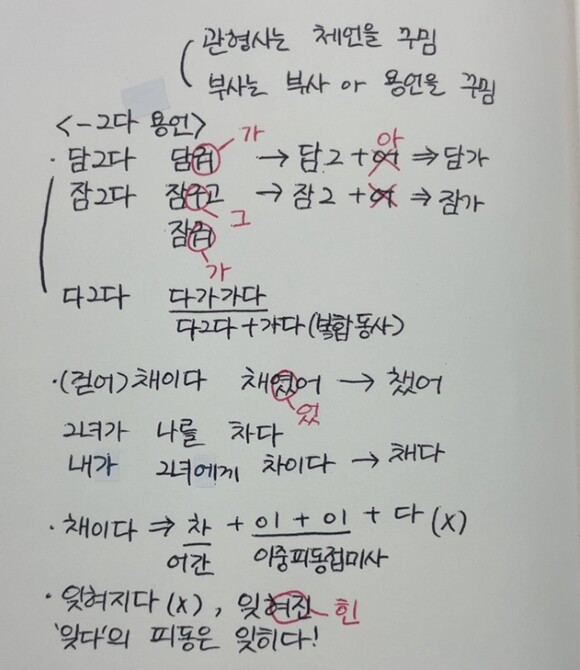 관형사는 체언을 꾸밈
부사는 부사 아 용언을 꾸밈
<-그다 용언>
가 아
· 담그다 담궈 → 담그+어 ⇒ 담가
잠그다 잠구고 → 잠그+어 ⇒ 잠가
그
잠궈
가
다그다 다가가다
다그다+가다(복합동사)
·(걷어)채이다 채였어 → 챘어
었
그녀가 나를 차다
내가 그녀에게 차이다 → 채다
· 채이다 ⇒ 차 + 이 + 이 + 다 (x)
어간 이중피동접미사
· 잊혀지다(x), 잊혀진 힌
'잊다'의 피동은 잊히다!